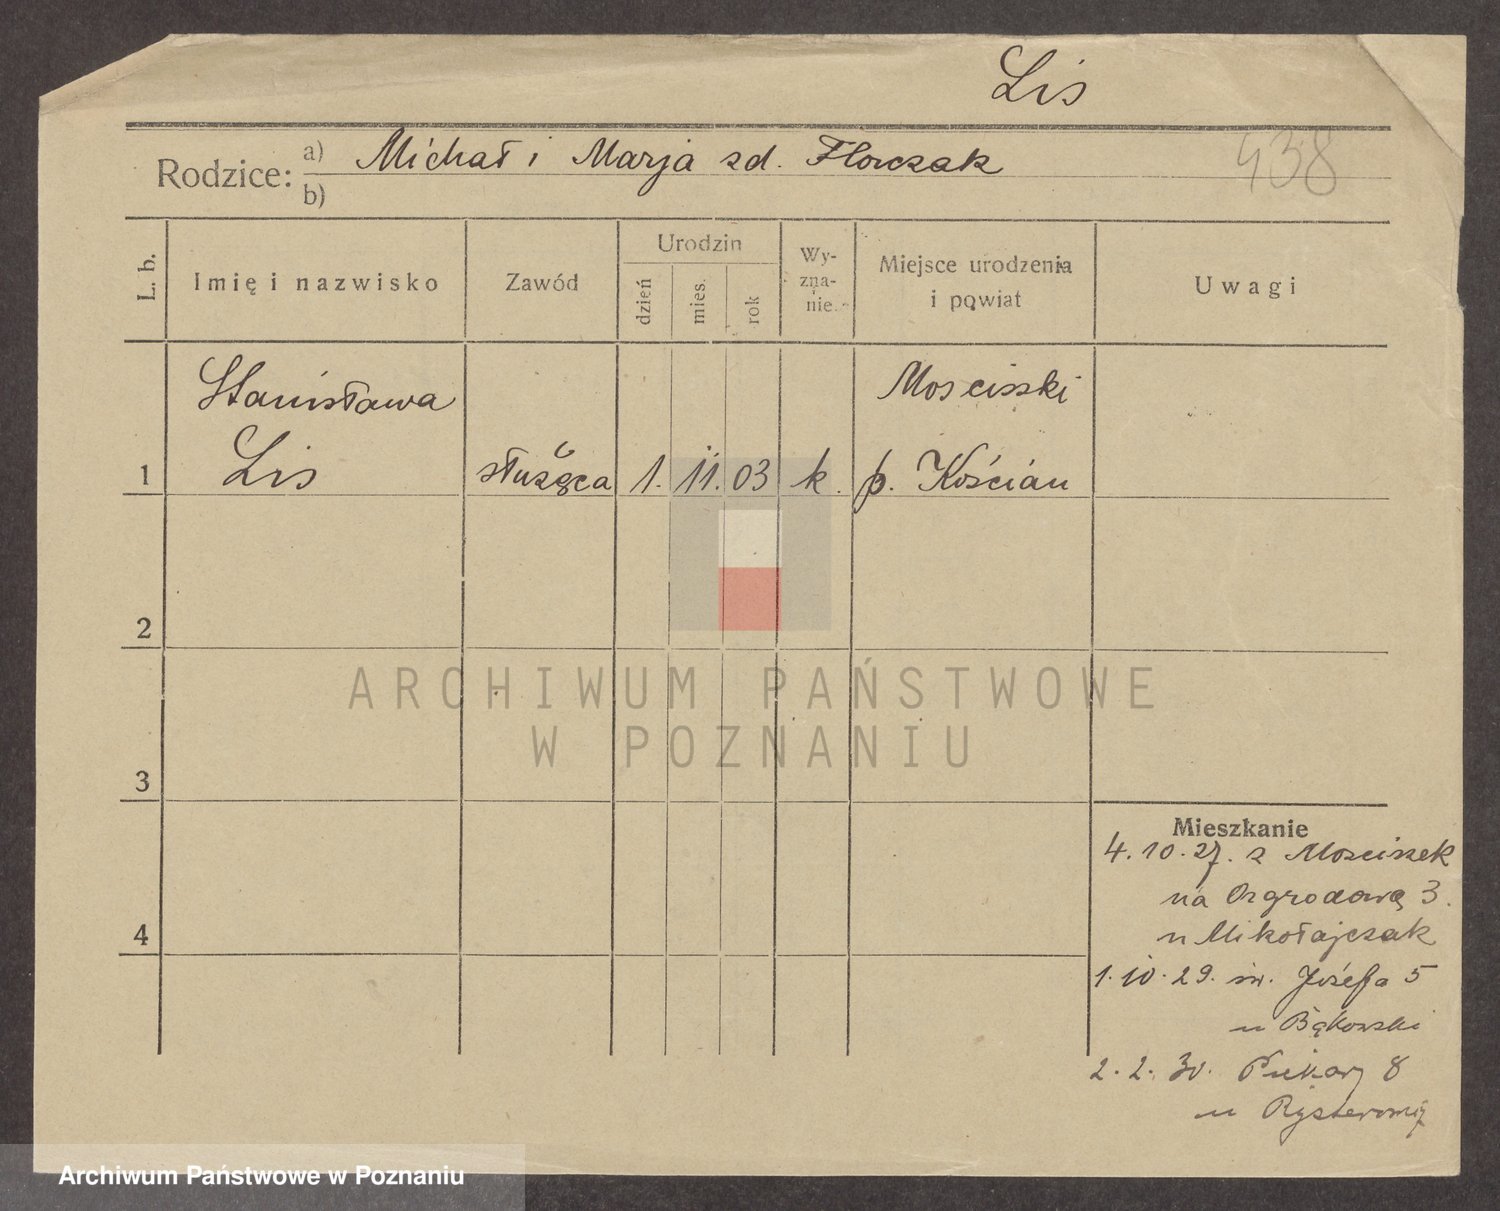 Lis
438
Rodzice: a) Michał i Marja zd. Florczak
b)
L. b.
Imię i nazwisko
Zawód
Urodzin
dzień
mies.
rok
Wy-
zna-
nie.
Miejsce urodzenia
i powiat
Uwagi
Stanisława
Mosciszki
1 Lis służąca 1. 11. 03 k. p. Kościan
2
3
4
ARCHIWUM PAŃSTWOWE
W POZNANIU
Mieszkanie
4. 10. 27. z Mosciszek
na Ogrodową 3.
u Mikołajczak
1. 10. 29. św. Józefa 5
u Bąkowski
2. 2. 30. Piekary 8
u
Archiwum Państwowe w Poznaniu